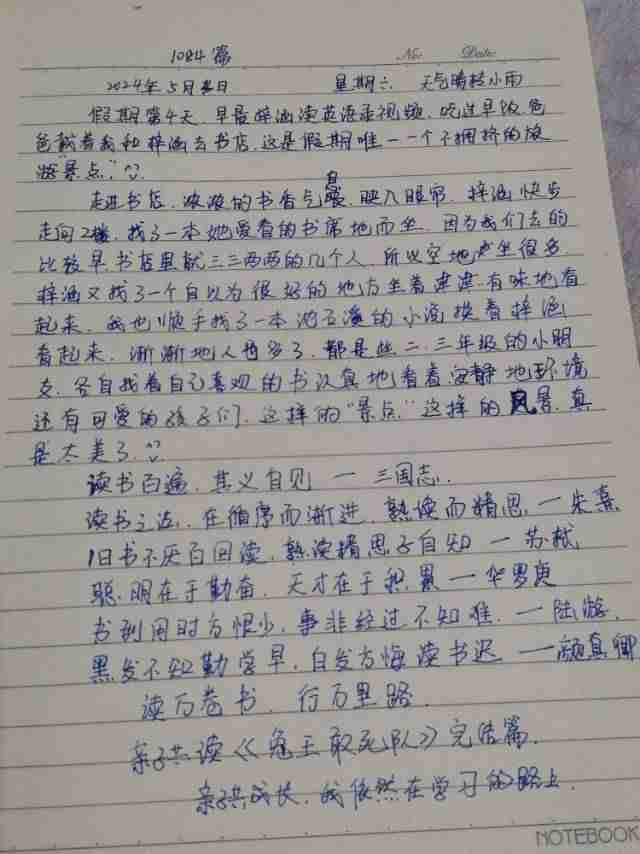 1084篇
No: Date:
2024年5月4日 星期六 天气晴转小雨
假期第4天,早晨梓涵读英语录视频,吃过早饭,爸
爸载着我和梓涵去书店,这是假期唯一一个不拥挤的旅
游景点”
走进书店,浓浓的书香气息,映入眼帘,梓涵快步
走向2楼,找了一本她爱看的书席地而坐,因为我们去的
比较早,书店里就三三两两的几个人,所以空地坐很多
梓涵又找了一个自以为很好的地方坐着津津有味地看
起来,我也顺手找了一本的小说挨着梓涵
看起来,渐渐地人也多了,都是些二、三年级的小朋
友,各自找着自己喜欢的书认真地看着安静地环境
还有可爱的孩子们,这样的“景点”这样的风景,真
是太美了,
读书百遍,其义自见 — 三国志,
读书之法,在循序而渐进,熟读而精思,一朱熹
旧书不厌百回读,熟读精思子自知 — 苏轼
聪明在于勤奋,天才在于积累 — 华罗庚
书到用时方恨少,事非经过不知难,— 陆游,
黑发不知勤学早,白发方悔读书迟 — 颜真卿
读万卷书,行万里路,
亲子共读《兔王敢死队》完结篇,
亲子共成长,我依然在学习的路上
NOTEBOOK